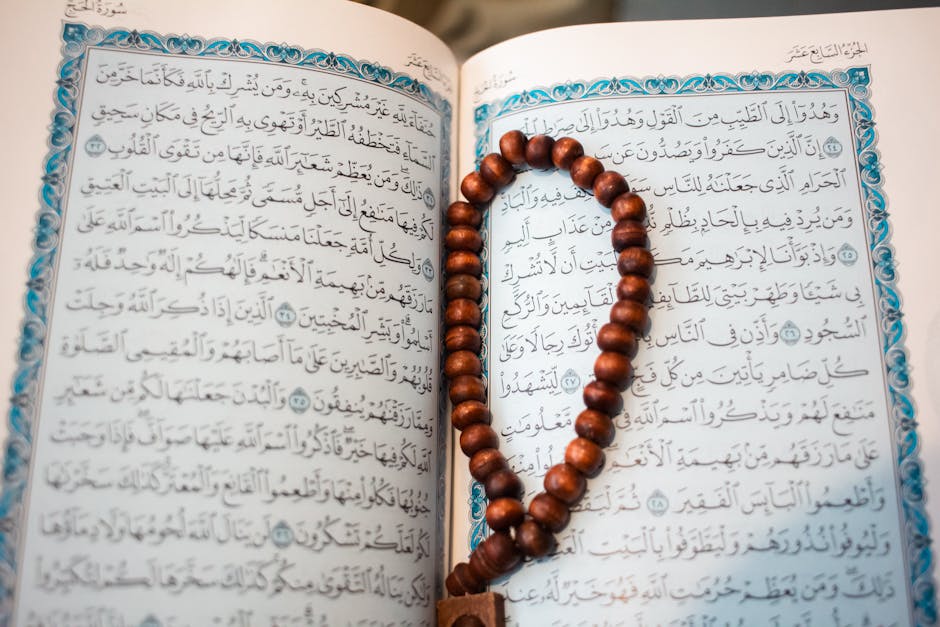 الجزء السابع عشر
سورة الحج
وَهُدُوٓا۟ إِلَى ٱلطَّيِّبِ مِنَ ٱلْقَوْلِ وَهُدُوٓا۟ إِلَىٰ صِرَٰطِ
٢٤ إِنَّ ٱلَّذِينَ كَفَرُوا۟ وَيَصُدُّونَ عَن
ٱلْحَرَامِ ٱلَّذِى جَعَلْنَٰهُ لِلنَّاسِ فِيهِ وَٱلْبَادِ
وَمَن يُرِدْ فِيهِ بِإِلْحَادٍۭ بِظُلْمٍ مِنْ عَذَابٍ أَلِيمٍ
٢٥ وَإِذْ بَوَّأْنَا لِإِبْرَٰهِيمَ ٱلْبَيْتِ أَن لَّا تُشْرِكْ
بِى شَيْـًٔا وَطَهِّرْ بَيْتِىَ لِلطَّآئِفِينَ وَٱلْقَآئِمِينَ وَٱلرُّكَّعِ
ٱلسُّجُودِ ٢٦ وَأَذِّن فِى ٱلنَّاسِ يَأْتُوكَ رِجَالًا وَعَلَىٰ
كُلِّ ضَامِرٍ يَأْتِينَ مِن كُلِّ فَجٍّ ٢٧ لِّيَشْهَدُوا۟
مَنَٰفِعَ لَهُمْ وَيَذْكُرُوا۟ ٱسْمَ ٱللَّهِ فِىٓ مَّعْلُومَٰتٍ
عَلَىٰ مَا رَزَقَهُم مِّنۢ بَهِيمَةِ ٱلْأَنْعَٰمِ مِنْهَا
وَأَطْعِمُوا۟ ٱلْبَآئِسَ ٱلْفَقِيرَ ٢٨ ثُمَّ
وَلْيُوفُوا۟ نُذُورَهُمْ وَلْيَطَّوَّفُوا۟ بِٱلْبَيْتِ
ذَٰلِكَ وَمَن يُعَظِّمْ حُرُمَٰتِ ٱللَّهِ فَهُوَ خَيْرٌ لَّهُۥ عِندَ
الجزء السابع عشر
سورة الحج
حُنَفَآءَ لِلَّهِ غَيْرَ مُشْرِكِينَ بِهِۦ ۚ وَمَن يُشْرِكْ بِٱللَّهِ فَكَأَنَّمَا خَرَّ مِنَ
ٱلسَّمَآءِ فَتَخْطَفُهُ ٱلطَّيْرُ أَوْ تَهْوِى بِهِ ٱلرِّيحُ فِى مَكَانٍ سَحِيقٍ
٣١ ذَٰلِكَ وَمَن يُعَظِّمْ شَعَٰٓئِرَ ٱللَّهِ فَإِنَّهَا مِن تَقْوَى ٱلْقُلُوبِ ٣٢
لَكُمْ فِيهَا مَنَٰفِعُ إِلَىٰٓ أَجَلٍ مُّسَمًّى ثُمَّ مَحِلُّهَآ إِلَى ٱلْبَيْتِ ٱلْعَتِيقِ
٣٣ وَلِكُلِّ أُمَّةٍ جَعَلْنَا مَنسَكًا لِّيَذْكُرُوا۟ ٱسْمَ ٱللَّهِ عَلَىٰ
مَا رَزَقَهُم مِّنۢ بَهِيمَةِ ٱلْأَنْعَٰمِ ۗ فَإِلَٰهُكُمْ إِلَٰهٌ وَٰحِدٌ فَلَهُۥٓ
أَسْلِمُوا۟ ۗ وَبَشِّرِ ٱلْمُخْبِتِينَ ٣٤ ٱلَّذِينَ إِذَا ذُكِرَ ٱللَّهُ وَجِلَتْ
قُلُوبُهُمْ وَٱلصَّٰبِرِينَ عَلَىٰ مَآ أَصَابَهُمْ وَٱلْمُقِيمِى ٱلصَّلَوٰةِ
وَمِمَّا رَزَقْنَٰهُمْ يُنفِقُونَ ٣٥ وَٱلْبُدْنَ جَعَلْنَٰهَا لَكُم مِّن شَعَٰٓئِرِ
ٱللَّهِ لَكُمْ فِيهَا خَيْرٌ ۖ فَٱذْكُرُوا۟ ٱسْمَ ٱللَّهِ عَلَيْهَا صَوَآفَّ ۖ فَإِذَا وَجَبَتْ
جُنُوبُهَا فَكُلُوا۟ مِنْهَا وَأَطْعِمُوا۟ ٱلْقَانِعَ وَٱلْمُعْتَرَّ ۚ كَذَٰلِكَ سَخَّرْنَٰهَا
لَكُمْ لَعَلَّكُمْ تَشْكُرُونَ ٣٦ لَن يَنَالَ ٱللَّهَ لُحُومُهَا وَلَا دِمَآؤُهَا
وَلَٰكِن يَنَالُهُ ٱلتَّقْوَىٰ مِنكُمْ ۚ كَذَٰلِكَ سَخَّرَهَا لَكُمْ لِتُكَبِّرُوا۟